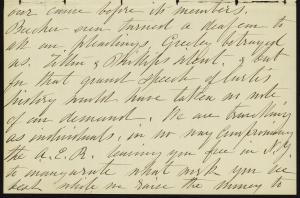 our cause before its members.
Beecher even turned a deaf ear to
ask our pleadings, Greeley betrayed
us. Tilton & Phillips silent, & but
for that grand speech of Curtis
history would have taken no note
of our demand. We are travelling
as individuals, in no way compromising
the A.E.R. leaving you free in N.Y.
to inaugurate what work you see
best while we raise the money to